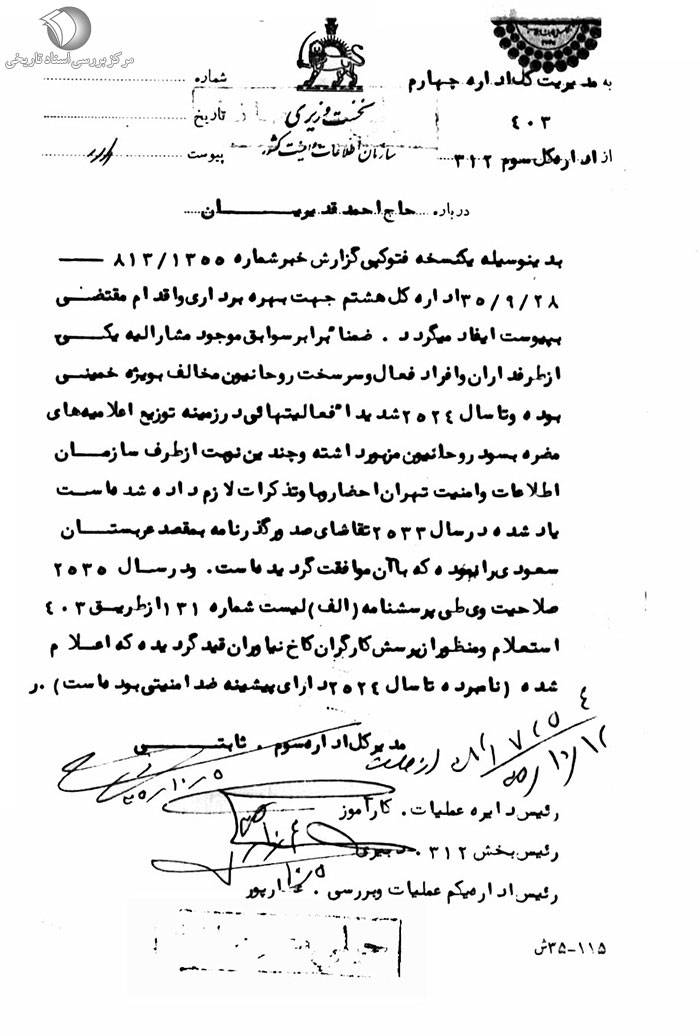 مرکز بررسی اسناد تاریخی
به مدیریت کل اداره چهارم
۴۰۳
از اداره کل سوم ۳۱۲
نخست وزیری
سازمان اطلاعات و امنیت کشور
شماره
تاریخ
پیوست
درباره حاج احمد قدیریان
بدینوسیله یکنسخه فتوکپی گزارش خبر شماره ۸۱۳/۱۳۵۵
۳۵/۹/۲۸ اداره کل هشتم جهت بهره برداری و اقدام مقتضی
بپیوست ایفاد میگردد . ضمنا" برابر سوابق موجود مشارالیه یکی
از طرفداران و افراد فعال و سرسخت روحانیون مخالف بویژه خمینی
بوده و تا سال ۲۵۲۴ شدیدا" فعالیتهائی در زمینه توزیع اعلامیه های
مضره بسود روحانیون مزبور داشته و چندین نوبت از طرف سازمان
اطلاعات و امنیت تهران احضار و بوی تذکرات لازم داده شده است
یاد شده در سال ۲۵۳۳ تقاضای صدور گذرنامه بمقصد عربستان
سعودی را نموده که با آن موافقت گردیده است . و در سال ۲۵۳۵
صلاحیت وی طی پرسشنامه (الف) لیست شماره ۱۳۱ از طریق ۴۰۳
استعلام و منظور از پرسش کارگران کاخ نیاوران قید گردیده که اعلام
شده (نامبرده تا سال ۲۵۲۴ دارای پیشینه ضد امنیتی بوده است) .ر
مدیر کل اداره سوم . ثابتی
۳۵/۱۰/۵
۳۵/۱۰/۱۲
رئیس دایره عملیات . کارآموز
رئیس بخش ۳۱۲ .
رئیس اداره یکم عملیات و بررسی .
۳۵-۱۱۵ش